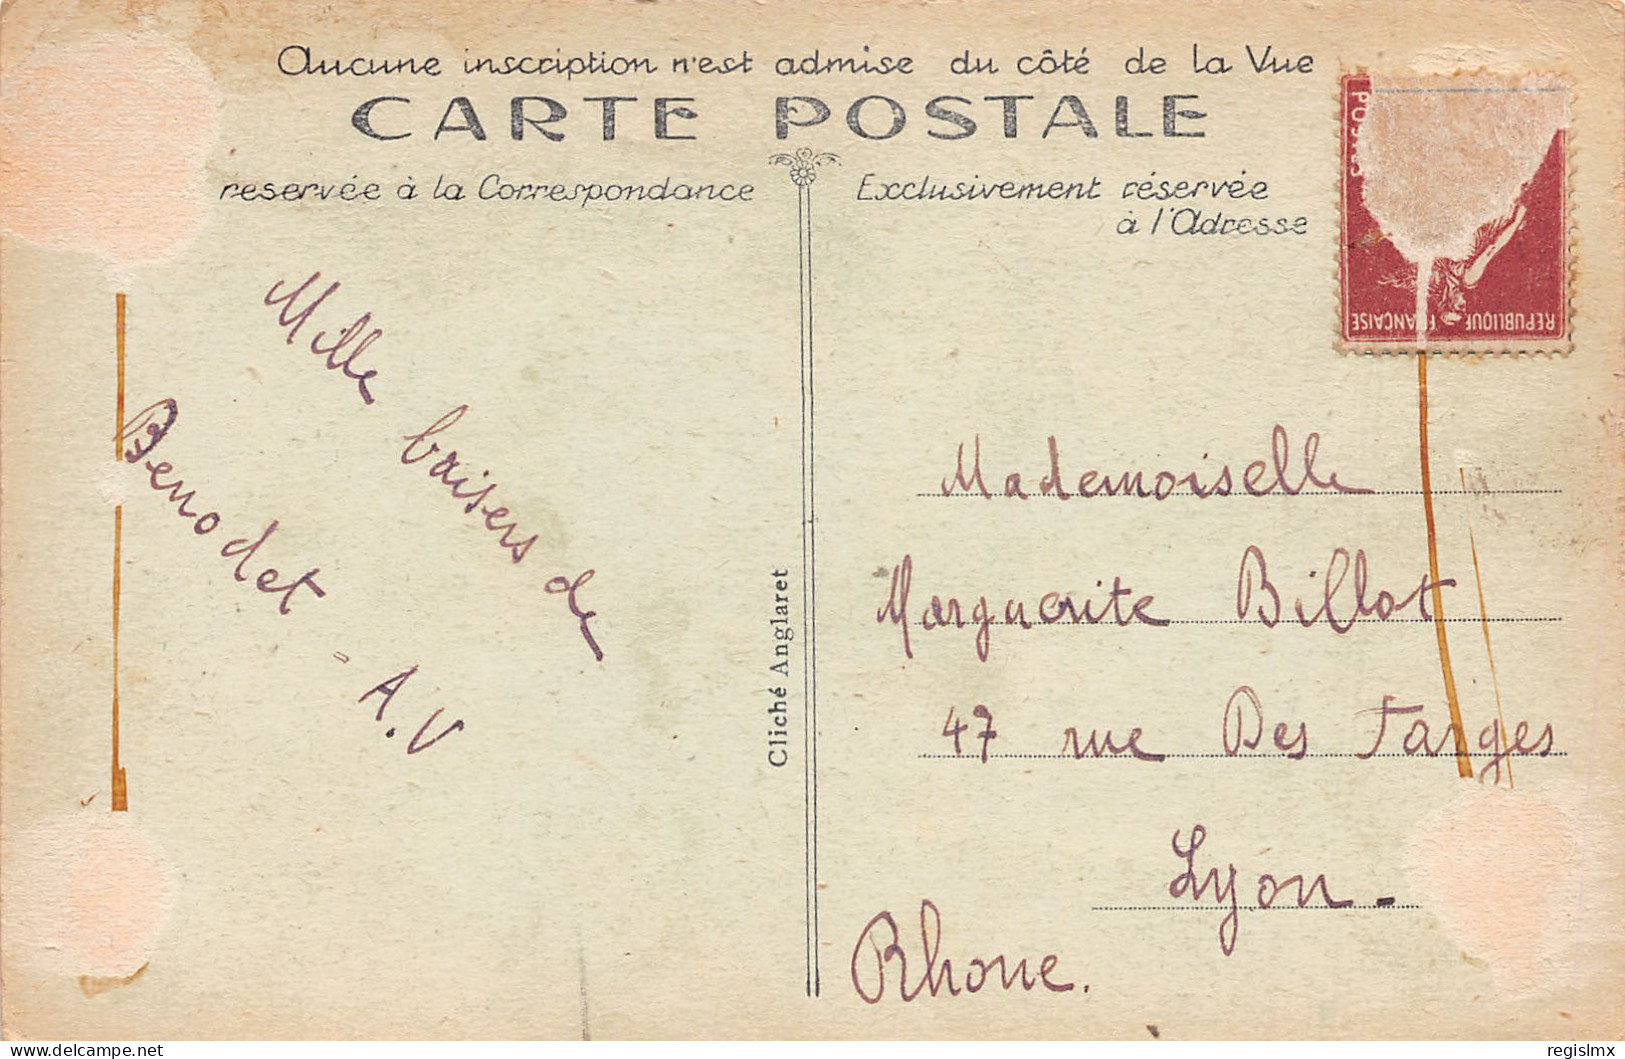 Aucune inscription n'est admise du côté de la Vue
CARTE POSTALE
reservée à la Correspondance
Exclusivement réservée
à l'Adresse
POSTES
REPUBLIQUE FRANÇAISE
Mille baisers de
Benodet
A.V
Cliché Anglaret
Mademoiselle
Marguerite Billot
47 rue Des Farges
Lyon -
Rhone.
delcampe.net
regislmx